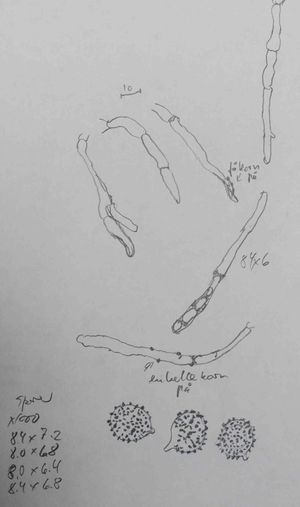 10
få korn
på
84x6
enkelte korn
på
Sporer
x1000
8.4 x 7.2
8.0 x 6.8
8.0 x 6.4
8.4 x 6.8